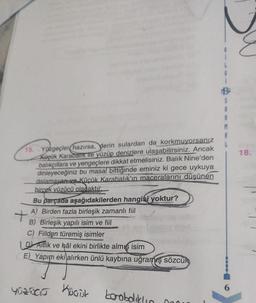 15. Yüzgeçler hazırsa, derin sulardan da korkmuyorsanız
Küçük Karabalık ile yüzüp denizlere ulaşabilirsiniz. Ancak
balıkçıllara ve yengeçlere dikkat etmelisiniz. Balık Nine'den
dinleyeceğiniz bu masal bittiğinde eminiz ki gece uykuya
dalamayan ve Küçük Karabalık'ın maceralarını düşünen
birçok yüzücü olacaktır.
Bu parçada aşağıdakilerden hangisi yoktur?
A) Birden fazla birleşik zamanlı fiil
B) Birleşik yapılı isim ve fiil
C) Fiilden türemiş isimler
D) İyelik ve hâl ekini birlikte almış isim
E) Yapım eki alırken ünlü kaybına uğramış sözcük
Küçük
6
18.